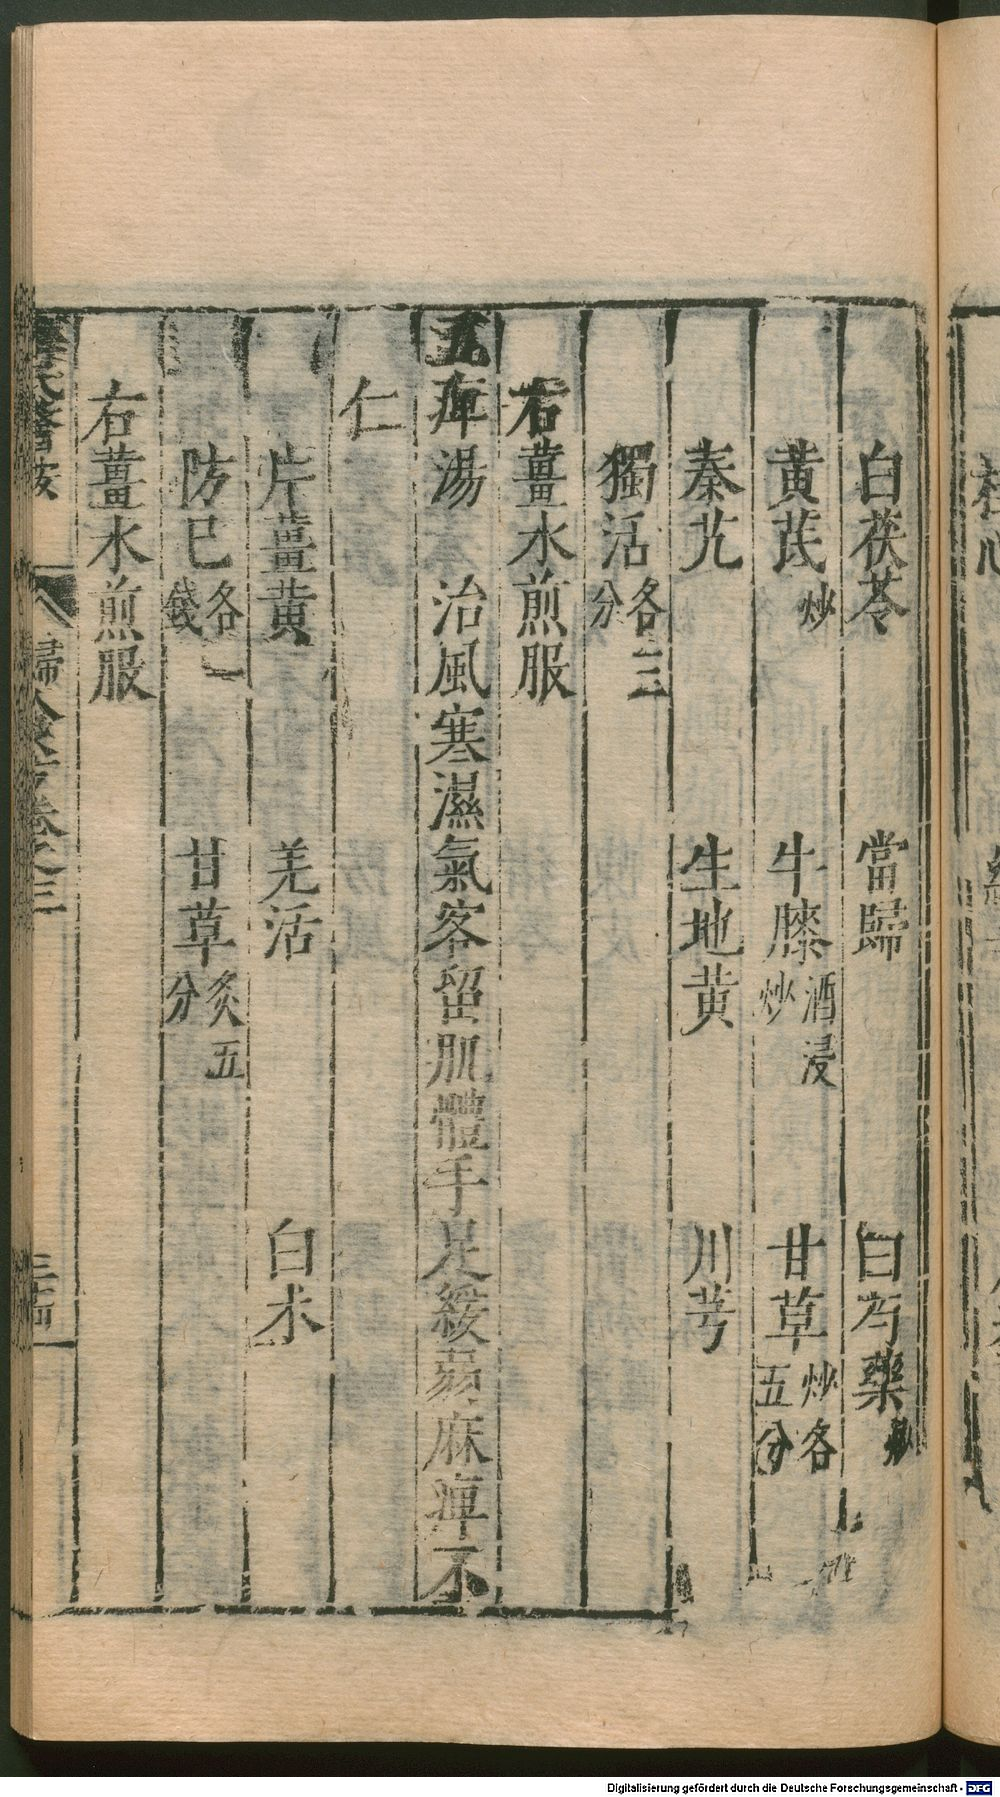 白茯苓 當歸 白芍藥炒
黄芪炒 牛膝酒浸炒 甘草炒各五分
秦艽 生地黄 川芎
獨活各三分
右薑水煎服
五痺湯 治風寒濕氣客留肌體手足緩弱麻痺不
仁
片薑黄 羌活 白朮
防已各一錢 甘草炙五分
右薑水煎服
婦人良方卷之三
Digitalisierung gefördert durch die Deutsche Forschungsgemeinschaft - DFG